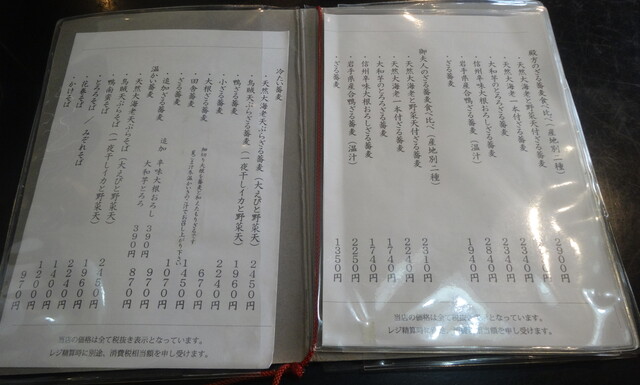 殿方のざる蕎麦食べ比べ(産地別二種) 2900円
・天然大海老と野菜天付ざる蕎麦
・天然大海老一本付ざる蕎麦 2340円
・大和芋のとろろざる蕎麦
・信州辛味大根おろしざる蕎麦 1940円
・岩手県産合鴨ざる蕎麦(温汁)
・ざる蕎麦
御夫人のざる蕎麦食べ比べ(産地別二種)
・天然大海老と野菜天付ざる蕎麦 2310円
・天然大海老一本付ざる蕎麦 2240円
・大和芋のとろろざる蕎麦 1740円
・信州辛味大根おろしざる蕎麦 1740円
・岩手県産合鴨ざる蕎麦(温汁) 2250円
・ざる蕎麦 1350円
当店の価格は全て税抜き表示となっています。
レジ精算時に別途、消費税相当額を申し受けます。
冷たい蕎麦
・天然大海老天ぷらざる蕎麦(大えびと野菜天) 2450円
・烏賊天ぷらざる蕎麦(一夜干しイカと野菜天) 1960円
・鴨ざる蕎麦 2240円
・小ざる蕎麦 670円
・大根ざる蕎麦 1450円
・田舎蕎麦 1070円
・ざる蕎麦 970円
・追加ざる蕎麦 870円
追加 辛味大根おろし 390円
大和芋とろろ 390円
温かい蕎麦
・天然大海老天ぷらそば(大えびと野菜天) 2450円
・烏賊天ぷらそば(一夜干しイカと野菜天) 1960円
・鴨南蛮そば 2240円
・とろろそば 1400円
・花巻そば / みぞれそば 1200円
・かけそば 970円
当店の価格は全て税抜き表示となっています。
レジ精算時に別途、消費税相当額を申し受けます。